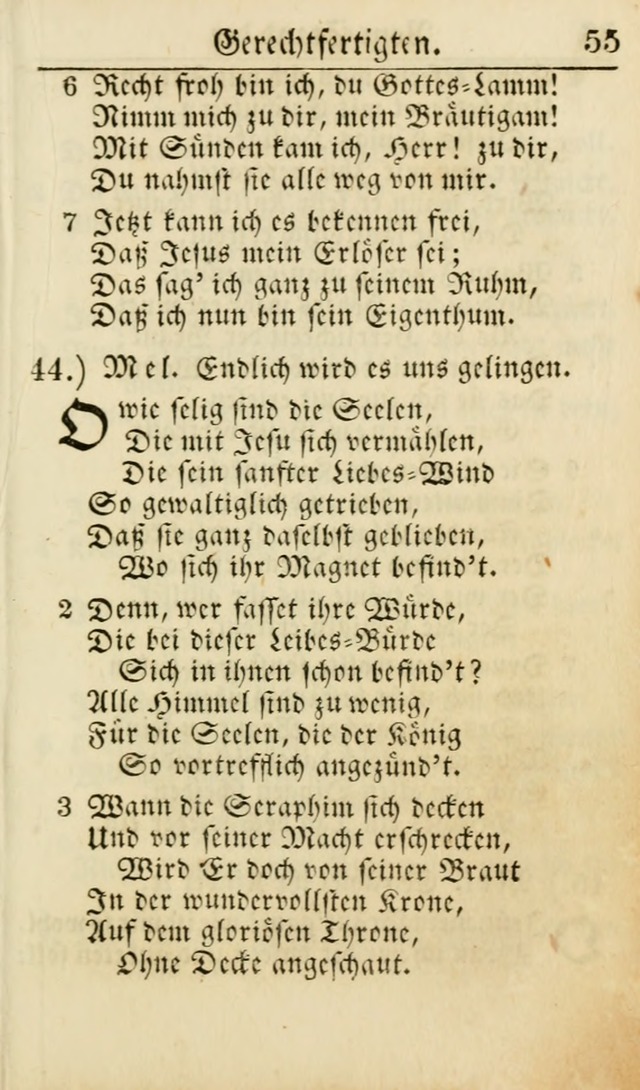 Gerechtfertigten. 55
6 Recht froh bin ich, du Gottes-Lamm!
Nimm mich zu dir, mein Bräutigam!
Mit Sünden kam ich, Herr! zu dir,
Du nahmst sie alle weg von mir.
7 Jetzt kann ich es bekennen frei,
Daß Jesus mein Erlöser sei;
Das sag' ich ganz zu seinem Ruhm,
Daß ich nun bin sein Eigenthum.
44.) Mel. Endlich wird es uns gelingen.
O wie selig sind die Seelen,
Die mit Jesu sich vermählen,
Die sein sanfter Liebes-Wind
So gewaltiglich getrieben,
Daß sie ganz daselbst geblieben,
Wo sich ihr Magnet befind't.
2 Denn, wer fasset ihre Würde,
Die bei dieser Leibes-Bürde
Sich in ihnen schon befind't?
Alle Himmel sind zu wenig,
Für die Seelen, die der König
So vortrefflich angezünd't.
3 Wann die Seraphim sich decken
Und vor seiner Macht erschrecken,
Wird Er doch von seiner Braut
In der wundervollsten Krone,
Auf dem gloriösen Throne,
Ohne Decke angeschaut.